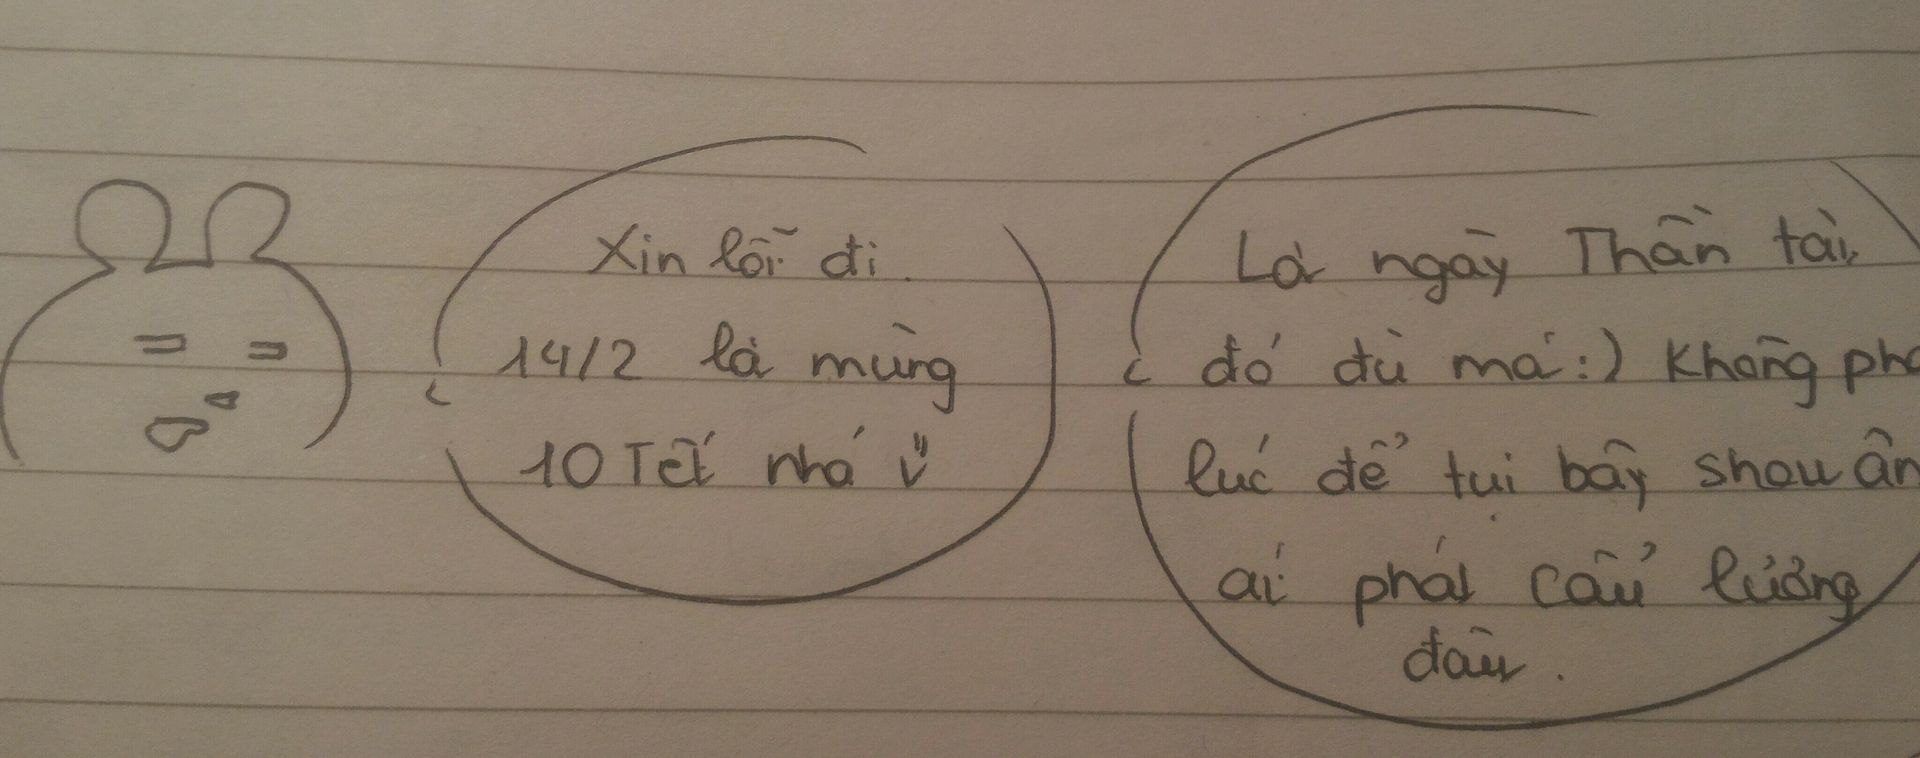 Xin lỗi đi.
14/2 là mùng
10 Tết nhá :v
Là ngày Thần tài,
đó đù má :) Không
lúc để tụi bây show ân
ái phát cẩu lương
đâu.